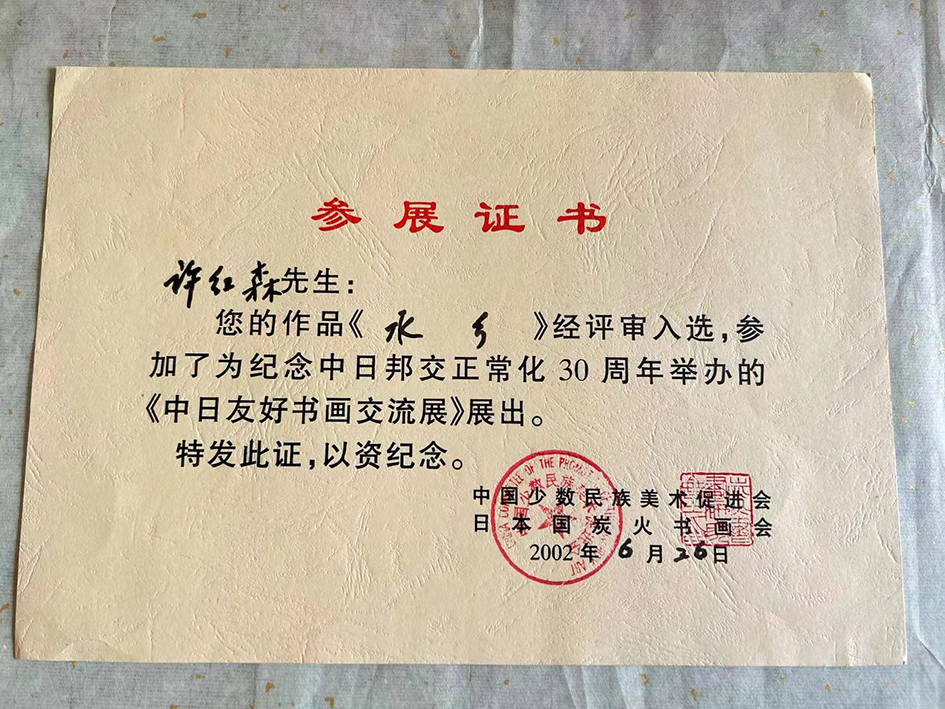 参展证书
许红森先生：
您的作品《水乡》经评审入选，参
加了为纪念中日邦交正常化30周年举办的
《中日友好书画交流展》展出。
特发此证，以资纪念。
中国少数民族美术促进会
日本国炭火书画会
2002年6月26日